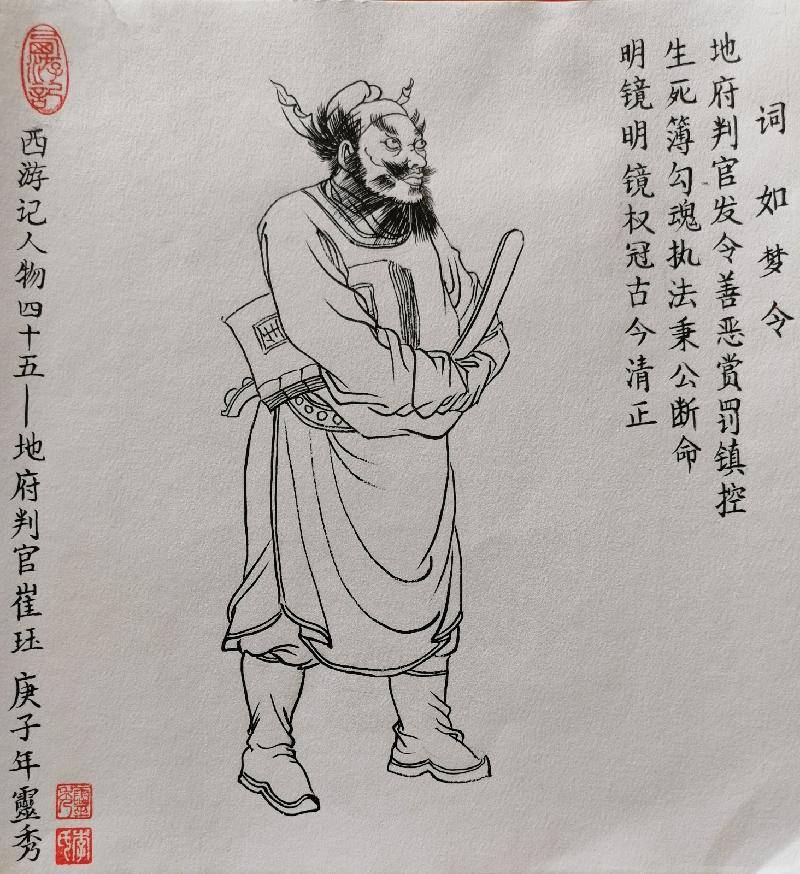 词如梦令
地府判官发令善恶赏罚镇控
生死簿勾魂执法秉公断命
明镜明镜权冠古今清正
西游记
西游记人物四十五—地府判官崔珏 庚子年靈秀
靈秀
李氏